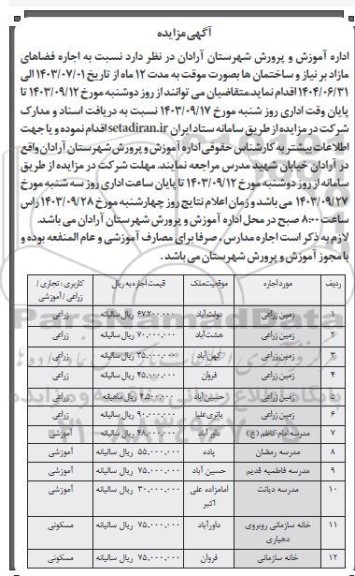 آگهی مزایده
اداره آموزش و پرورش شهرستان آرادان در نظر دارد نسبت به اجاره فضاهای
مازاد بر نیاز و ساختمان ها بصورت موقت به مدت ۱۲ ماه از تاریخ ۱۴۰۳/۰۷/۰۱ الی
۱۴۰۴/۰۶/۳۱ اقدام نماید. متقاضیان می توانند از روز دوشنبه مورخ ۱۴۰۳/۰۹/۱۲ تا
پایان وقت اداری روز شنبه مورخ ۱۴۰۳/۰۹/۱۷ نسبت به دریافت اسناد و مدارک
شرکت در مزایده از طریق سامانه ستاد ایران setadiran.ir اقدام نموده و یا جهت
اطلاعات بیشتر به کارشناس حقوقی اداره آموزش و پرورش شهرستان آرادان واقع
در آرادان خیابان شهید مدرس مراجعه نمایند. مهلت شرکت در مزایده از طریق
سامانه از روز دوشنبه مورخ ۱۴۰۳/۰۹/۱۲ تا پایان ساعت اداری روز سه شنبه مورخ
۱۴۰۳/۰۹/۲۷ می باشد و زمان اعلام نتایج روز چهارشنبه مورخ ۱۴۰۳/۰۹/۲۸ راس
ساعت ۸:۰۰ صبح در محل اداره آموزش و پرورش شهرستان آرادان می باشد.
لازم به ذکر است اجاره مدارس، صرفا برای مصارف آموزشی و عام المنفعه بوده و
با مجوز آموزش و پرورش شهرستان می باشد.
ردیف مورد اجاره موقعیت ملک قیمت اجاره به ریال کاربری: تجاری / زراعی / آموزشی
۱ زمین زراعی دولت آباد ۶۷،۲۰۰،۰۰۰ ریال سالیانه زراعی
۲ زمین زراعی هشت آباد ۷۰،۰۰۰،۰۰۰ ریال سالیانه زراعی
۳ زمین زراعی کهن آباد ۳۵،۰۰۰،۰۰۰ ریال سالیانه زراعی
۴ زمین زراعی فروان ۴۵،۰۰۰،۰۰۰ ریال سالیانه زراعی
۵ زمین زراعی حسین آباد ۴،۵۰۰،۰۰۰ ریال ماهیانه زراعی
۶ زمین زراعی ۹۰،۰۰۰،۰۰۰ ریال سالیانه زراعی
۷ مدرسه امام کاظم (ع) داورآباد ۴۸،۰۰۰،۰۰۰ ریال سالیانه آموزشی
۸ مدرسه رمضان پاده ۵۵،۰۰۰،۰۰۰ ریال سالیانه آموزشی
۹ مدرسه فاطمیه قدیم حسین آباد ۷۵،۰۰۰،۰۰۰ ریال سالیانه آموزشی
۱۰ مدرسه دیانت امامزاده علی اکبر ۳۰،۰۰۰،۰۰۰ ریال سالیانه آموزشی
۱۱ خانه سازمانی روبروی دهیاری داورآباد ۷۵،۰۰۰،۰۰۰ ریال سالیانه مسکونی
۱۲ خانه سازمانی فروان ۷۵،۰۰۰،۰۰۰ ریال سالیانه مسکونی